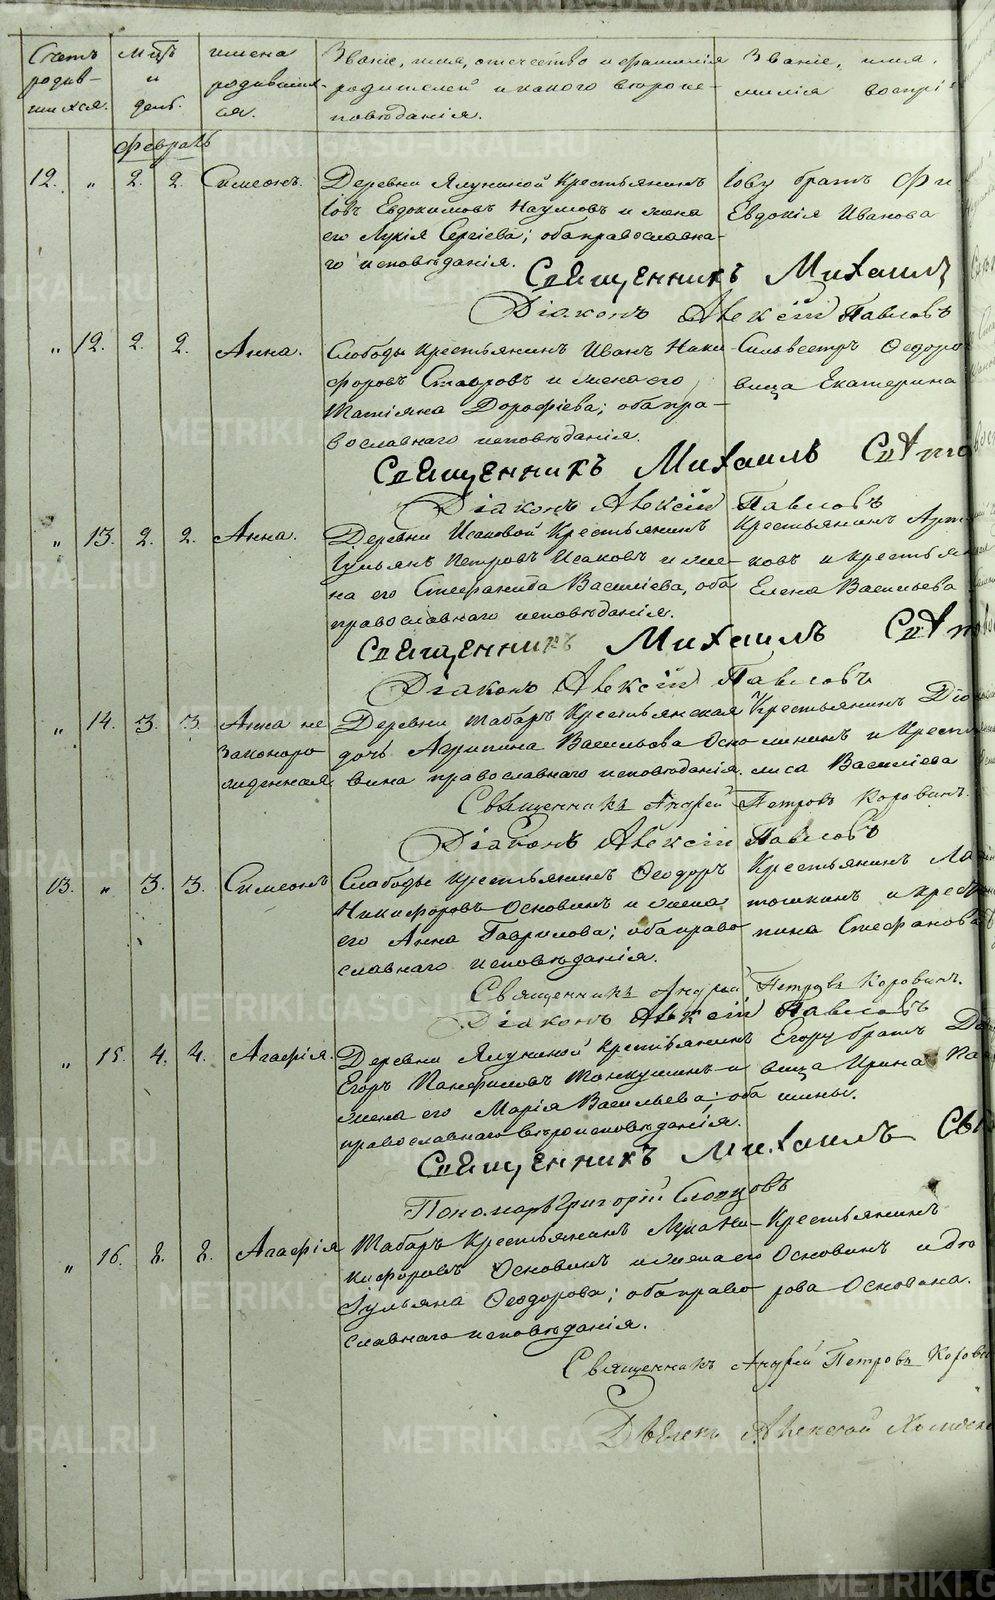 Счетъ родив-
шихся.
Мцъ
и
день.
имена
родивших-
ся.
Званіе, имя, отчество и фамилія
родителей и какого вѣроис-
повѣданія.
Званіе, имя,
милія воспрі
Февраль
12. " 2. 2. Симеонъ. Деревни Ялуниной Крестьянинъ
Іовъ Евдокимовъ Наумовъ и жена
его Лукія Сергіева; оба православна-
го исповѣданія.
Іову братъ Фи
Евдокія Иванова
Священникъ Михаилъ
Діаконъ Алексій Павловъ
" 12. 2. 2. Анна. Слободы Крестьянинъ Иванъ Ники
форовъ и жена его
Татіяна Дорофіева; оба пра-
вославнаго исповѣданія.
Сильвестръ Ѳедоро
вица Екатерина
Священникъ Михаилъ
Діаконъ Алексій Павловъ
" 13. 2. 2. Анна. Деревни Исаковой Крестьянинъ
Іульянъ Петровъ Исаковъ и же-
на его Стефанида Василіева, оба
православнаго исповѣданія.
Крестьянинъ Арт
ковъ и крестьян
Елена Васильева
Священникъ Михаилъ
Діаконъ Алексій Павловъ
" 14. 3. 3. Анна не
законоро
жденная
Деревни Табаръ Крестьянская
дочь Агрипина Васильева Осно
вина православнаго исповѣданія.
Крестьянинъ Діо
минъ и Крест
лиса Василіева
Священникъ Андрей Петровъ Коровинъ.
Діаконъ Алексій Павловъ
13. " 3. 3. Симеонъ Слободы Крестьянинъ Ѳеодоръ
Никифоровъ Основинъ и жена
его Анна Гаврилова; оба право
славнаго исповѣданія.
Крестьянинъ
тошкинъ и крест
пина Стефанова
Священникъ Андрей Петровъ Коровинъ.
Діаконъ Алексій Павловъ
" 15. 4. 4. Агафія. Деревни Ялуниной Крестьянинъ
Егоръ Панфиловъ и
жена его Марія Васильева; оба
православнаго вѣроисповѣданія.
Егору братъ
вица Ирина
шины.
Священникъ Михаилъ
Пономарь Григорій Словцовъ
" 16. 8. 8. Агафія Табаръ Крестьянинъ Лука Ни-
кифоровъ Основинъ и жена его
Іульяна Ѳеодорова; оба право
славнаго исповѣданія.
Крестьянинъ
Основинъ и
рова Основина.
Священникъ Андрей Петровъ Корови
METRIKI.GASO-URAL.RU